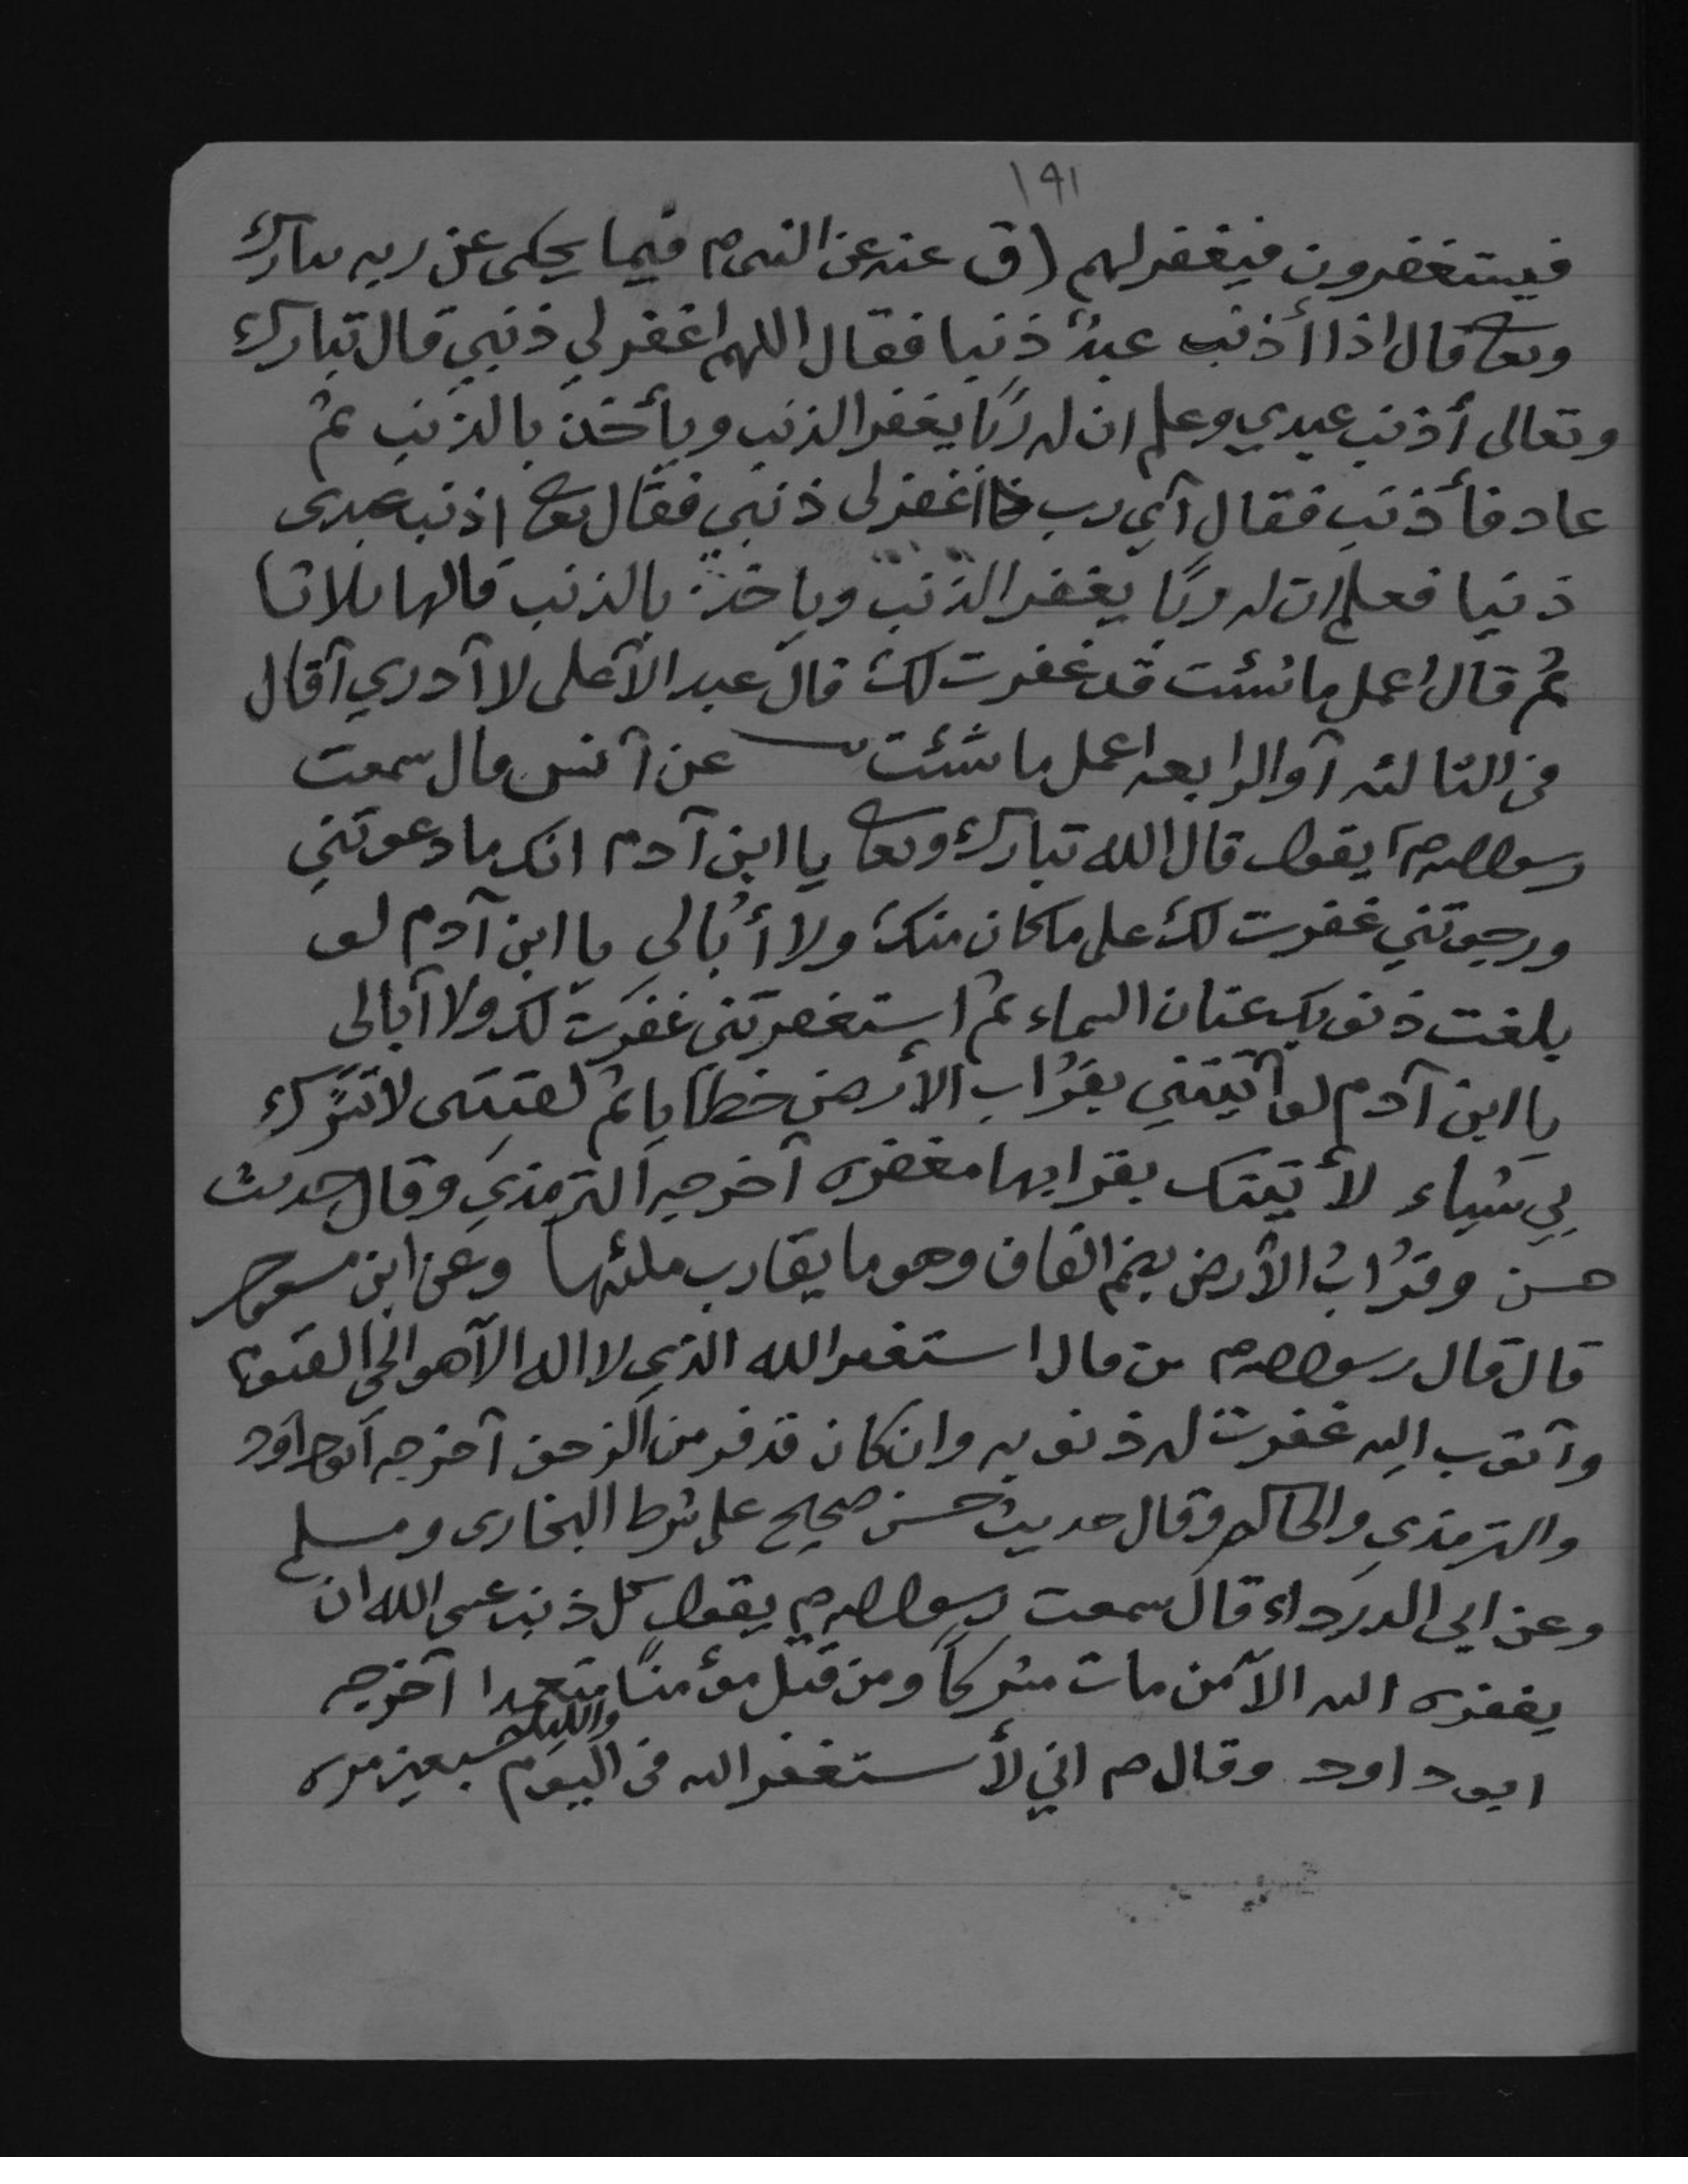 ١٩١
فيستغفرون فيغفر لهم (ق عنه عن النبى م فيما يحكى عن ربه تبارك
وتعا قال اذا أذنب عبدٌ ذنبا فقال اللهم اغفر لي ذنبي قال تبارك
وتعالى أذنب عبدي وعلم ان له ربًا يغفر الذنب ويأخذ بالذنب ثم
عاد فأذنب فقال آي رب اغفر لى ذنبي فقال تعا اذنب عبدى
ذنبا فعلم ان له ربًا يغفر الذنب وياخذ بالذنب قالها ثلاثا
ثم قال اعمل ما شئت قد غفرت لك قال عبد الآعلى لا آدري آقال
فى الثالثه آو الرابعه اعمل ما شئت عن آنس قال سمعت
رسول الله م يقول قال الله تبارك وتعا يا ابن آدم انك ما دعوتني
ورجوتني غفرت لك على ما كان منك ولا أُبالى يا ابن آدم لو
بلغت ذنوبك عنان السماء ثم استغفرتنى غفرت لك ولا آبالى
يا ابن آدم لو آتيتني بقُراب الأرض خطايا ثم لقيتنى لا تشرك
بي شياء لأتيتك بقرابها مغفره آخرجه الترمذي وقال حديث
حسن وقُرابُ الأرض بضم القاف وهو ما يقارب ملئها وعن ابن مسعود
قال قال رسول الله م من قال استغفر الله الذي لا اله الآ هو الحي القيوم
وآتوب اليه غفرت له ذنوبه وان كان قد فر من الزحف آخرجه آبو داود
والترمذي والحاكم وقال حديث حسن صحيح على شرط البخارى ومسلم
وعن ابي الدرداء قال سمعت رسول الله م يقول كل ذنب عسى الله ان
يغفره الله الآ من مات مشركاً ومن قتل مؤمنًا متعمدا آخرجه
ابو داود وقال م اني لأستغفر الله فى اليوم والليلة سبعين مره